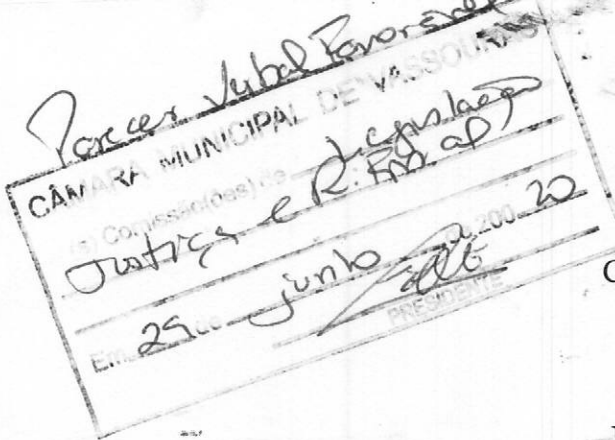 Parecer Verbal Favorável
CÂMARA MUNICIPAL DE VASSOURAS
(s) Comissão(ões) de Legislação
Justiça e R. Final
Em 29 de junho de 200 20
PRESIDENTE